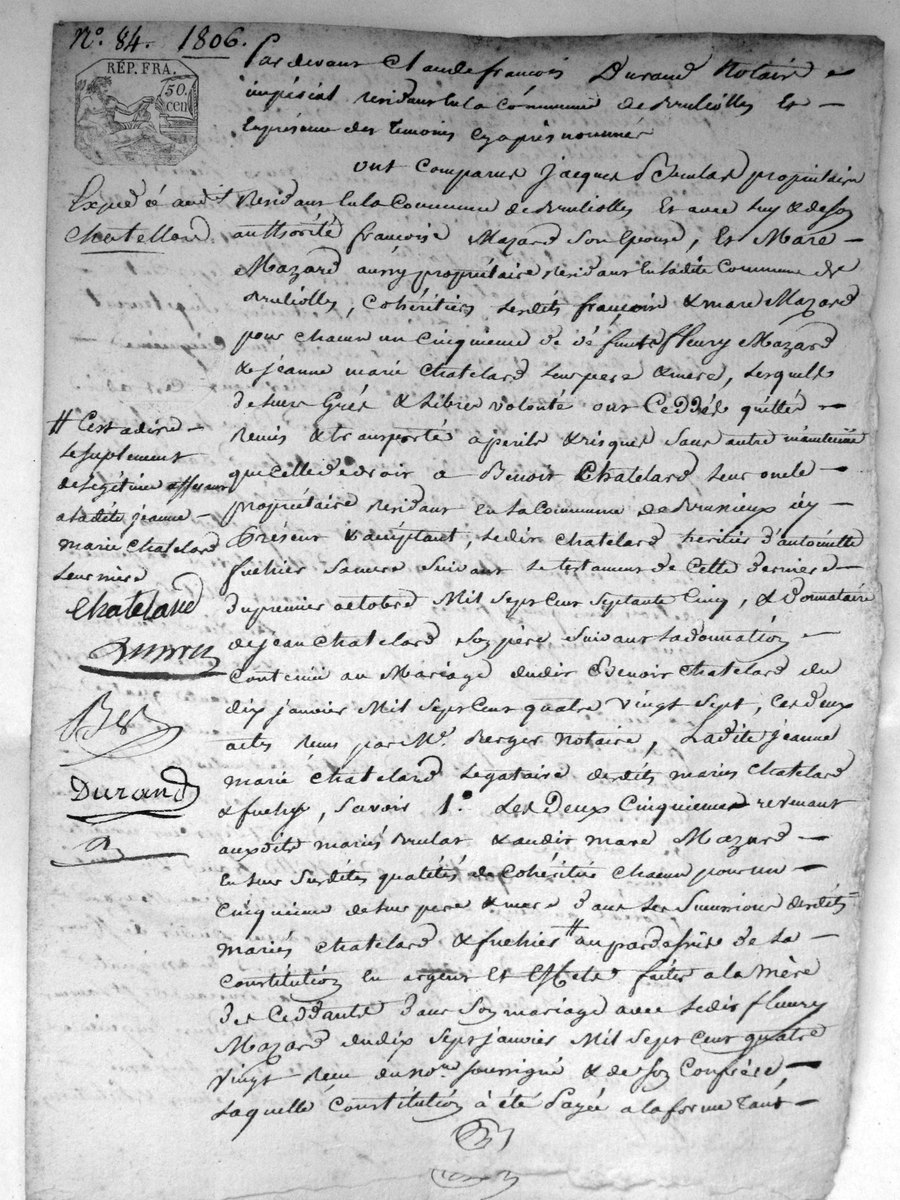 N.o 84. 1806.
RÉP. FRA.
50.
cen
Pardevant Claude françois Durand Notaire
impérial residant en la Commune de Bruliolles Et
En présence des temoins cy après nommés
ont comparus jacques Brulas propriétaire
Residant en la Commune de Bruliolles Et avec luy & de son
authorité françoise Mazard son Epouse, Et Marc
Mazard aussy propriétaire residant en ladite Commune de
Bruliolles, Cohéritiers lesdits françoise & marc Mazard
pour chacun un cinquieme de défunts fleury Mazard
& jeanne marie Chatelard leurs pere & mere, lesquels
de leurs Grés & libres volonté ont Ceddés quittés
remis & transporté a perils & risques sans autre maintenue
que celle de droit a Benoit Chatelard leur oncle
propriétaire residant en la Commune de Brussieux icy
Présent & acceptant, ledit Chatelard heritier d'antoinette
fuchier sa mere suivant le testament de cette derniere
du premier octobre Mil Sept Cent Septante Cinq, & donnataire
de jean Chatelard son père suivant la donnation
Contenue au Mariage dudit Benoit Chatelard du
dix janvier Mil Sept Cent quatre Vingt Sept, Ces deux
actes reçus par M.e Berger Notaire, Ladite jeanne
marie Chatelard légataire desdits mariés Chatelard
& fuchier, Savoir 1.o Les Deux Cinquiemes revenant
auxdits mariés Brulas & audit marc Mazard
En leurs susdites qualités de Cohéritiers chacun pour un
cinquieme de leurs pere & mere dans les successions desdits
mariés Chatelard & fuchier # au par dessus de la
Constitution en argent Et Effets faite a la mère
des Ceddants dans son mariage avec ledit fleury
Mazard du dix Sept janvier Mil Sept Cent quatre
vingt reçu du no.re soussigné & de son Confrère
Laquelle Constitution a été Payée a la forme tant
Expedié audit
Chatellard
# C'est a dire
le suplement
de légitime afferant
a ladite jeanne
marie Chatelard
leur mere
Chatelard
Durand